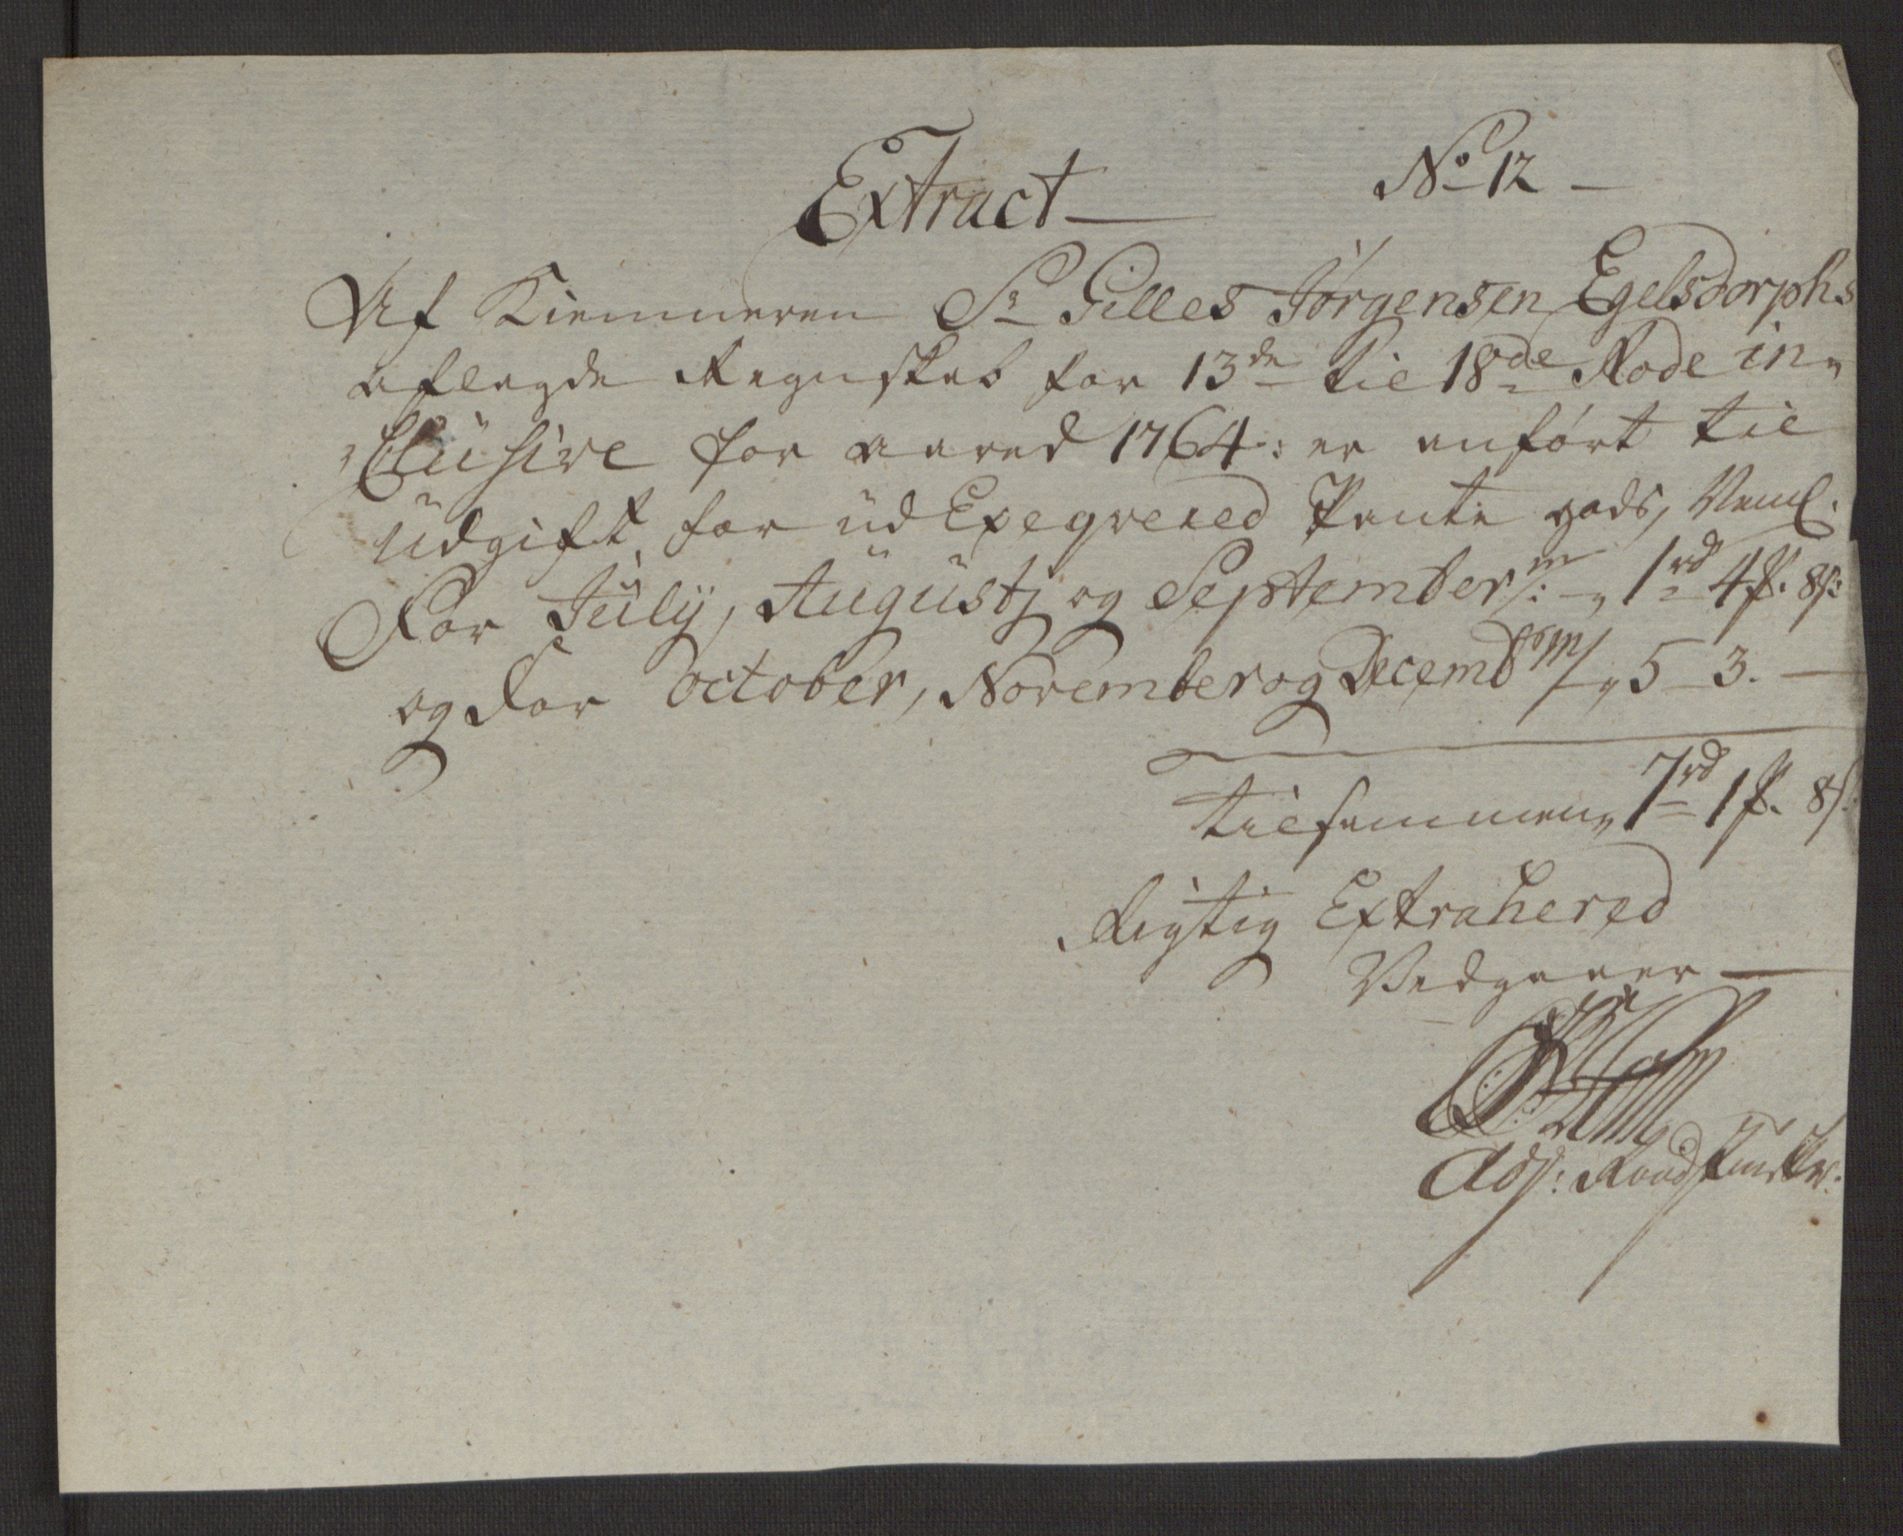 Extract No 12
Af Kiemneren Sr Gilles Jørgensen Egelsdorphs
aflegde Regnskab for 13de til 18de Rode in-
clusive for aared 1764: er anført til
Udgift for ud Exegvered Pante gods, Neml.
For July, Augustj og September m: 1 rd 4 ß. 8 s:
og for October, November og Decembr m/ 5 3.
tilsammen 7 rd 1 ß. 8 s.
Rigtig Extrahered
Vedgaaer
Adj: Raadstueskr.